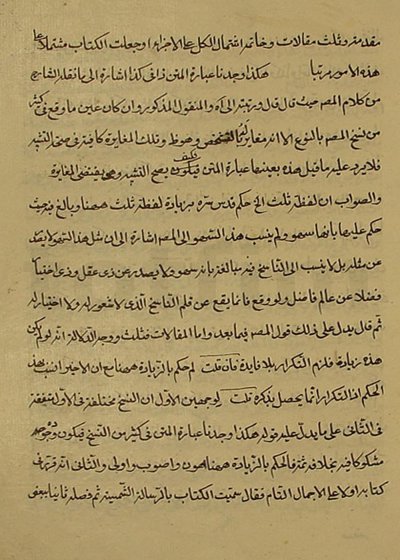 مقدمة وثلث مقالات وخاتمة اشتمال الكل على الاجزاء او جعلت الكتاب مشتملا على
هذه الامور مرتبا هكذا وجدنا عبارة المتن ذا فى كذا اشارة الى ما نقله الشارح
من كلام المصه حيث قال قال ورتبته الى آه والمنقول المذكور وان كان عين ما وقع فى كثير
من نسخ المصه بالنوع الا انه مغاير لها بالشخص وهو ظ وتلك المغايرة كافية فى صحة التشبيه
فلا يرد عليه ما قيل هذه بعينها عبارة المتن فكيف يصح التشبيه وهى يقتضى المغايرة
والصواب ان لفظة ثلث الخ حكم قدس سره بزيادة لفظة ثلث ههنا وبالغ فيه حيث
حكم عليها بانها سهو ولم ينسب هذا السهو الى المصه اشارة الى ان مثل هذا السهو لا يصدر
عن مثله بل لا ينسب الى الناسخ فيه مبالغة بانه سهو ولا يصدر عن ذى عقل وذى اختيار
فضلا عن عالم فاضل ولو وقع فانما يقع عن قلم الناسخ الذى لا شعور له ولا اختيار له
ثم قال يدل على ذلك قول المصه فيما بعد واما المقالات فثلث ووجه الدلالة انه لو لم يكن
هذه زيادة فلزم التكرار بلا فايدة فان قلت لم حكم بالزيادة ههنا مع ان الاخير انسب بهذا
الحكم اذ التكرار انما يحصل بذكره قلت لوجهين الاول ان النسخ مختلفة فى الاول متفقة
فى الثانى على ما يدل عليه قوله هكذا وجدنا عبارة المتن فى كثير من النسخ فيكون وجوده
مشكوكا فيه بخلافه ثمة فالحكم بالزيادة ههنا اهون واصوب واولى والثانى انه قرر فى
كتابه اولا على الاجمال التام فقال سميت الكتاب بالرسالة الشمسية ثم فصله ثانيا بعض